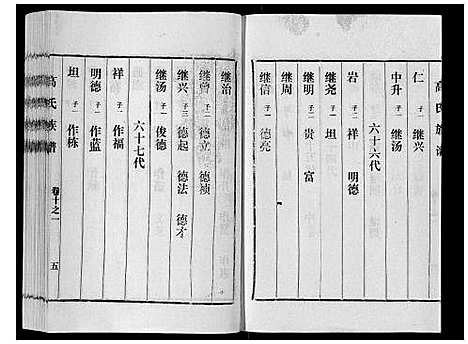 高氏族谱
仁 子一 继兴
中升 子一 继汤
六十六代
岩 子二 祥 明德
继尧 子一 坦
继明 子二 贵 富
继周
继信 子一 德亮
继治
继曾 子二 德立 德祯
继兴 子三 德起 德法 德才
继汤 子一 俊德
六十七代
祥 子一 作福
明德 子一 作蓝
坦 子一 作栋
高氏族谱
卷十之一
五